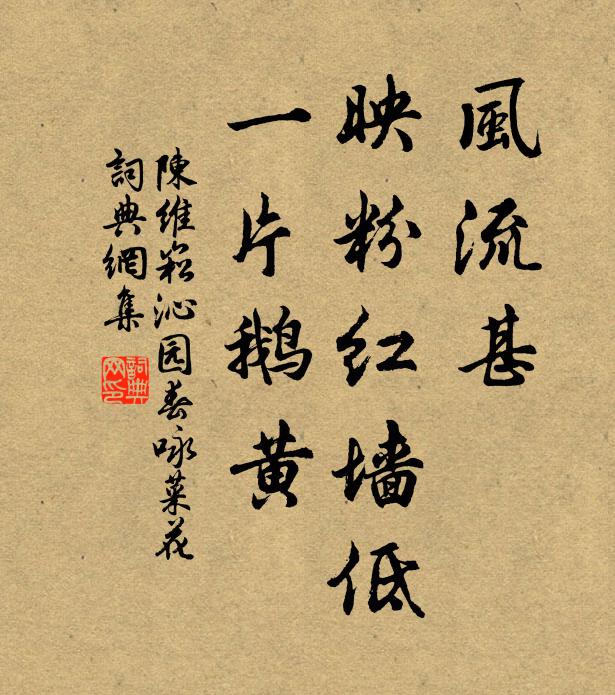 風流甚
映粉红墙低
一片鹅黄
陳維崧沁园春咏菜花
詞典網集
詞典网印